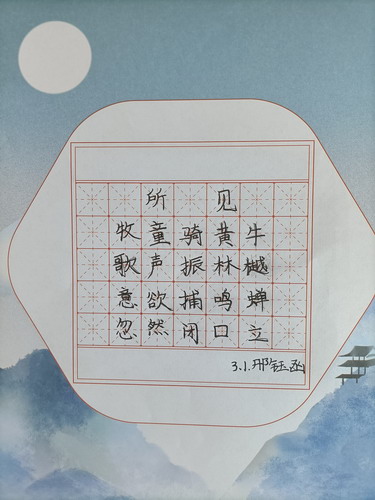 所见
牧童骑黄牛
歌声振林樾
意欲捕鸣蝉
忽然闭口立
3.1.邢钰函